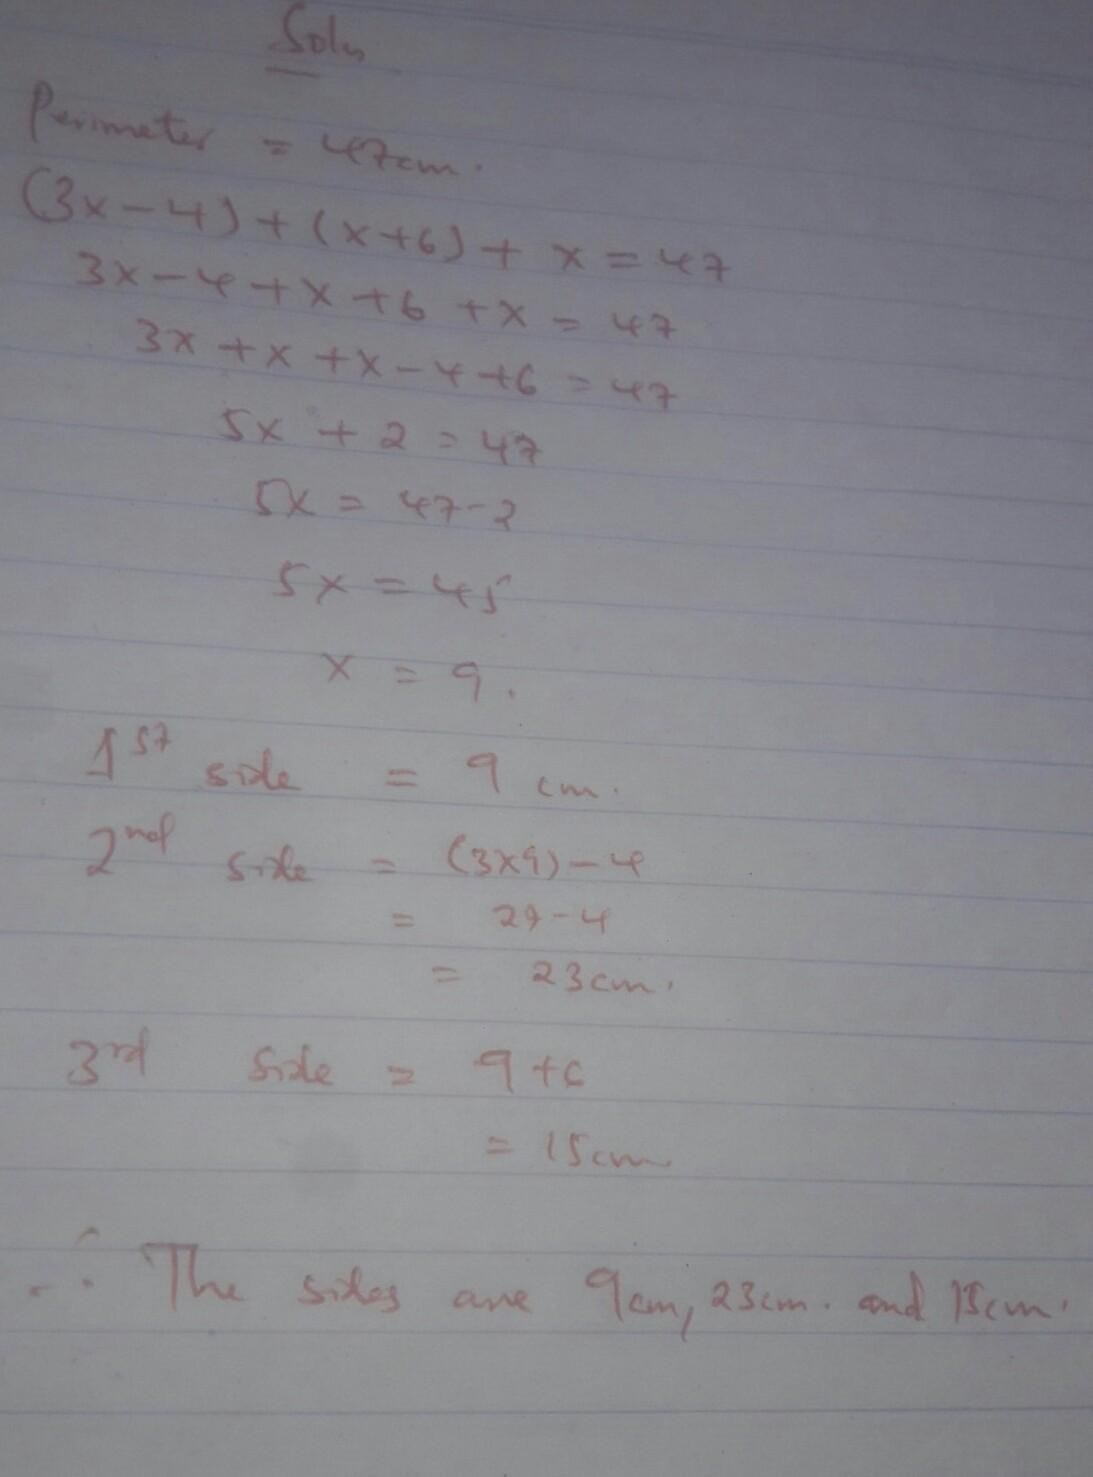 Soln
Perimeter = 47cm.
(3x-4)+(x+6)+ x = 47
3x-4+x+6 +x = 47
3x +x +x-4+6 = 47
5x + 2 = 47
5x = 47-2
5x = 45
x = 9.
1st side = 9 cm.
2nd side = (3x9)-4
= 27-4
= 23cm.
3rd Side = 9+6
= 15cm
∴ The sides are 9cm, 23cm. and 15cm.